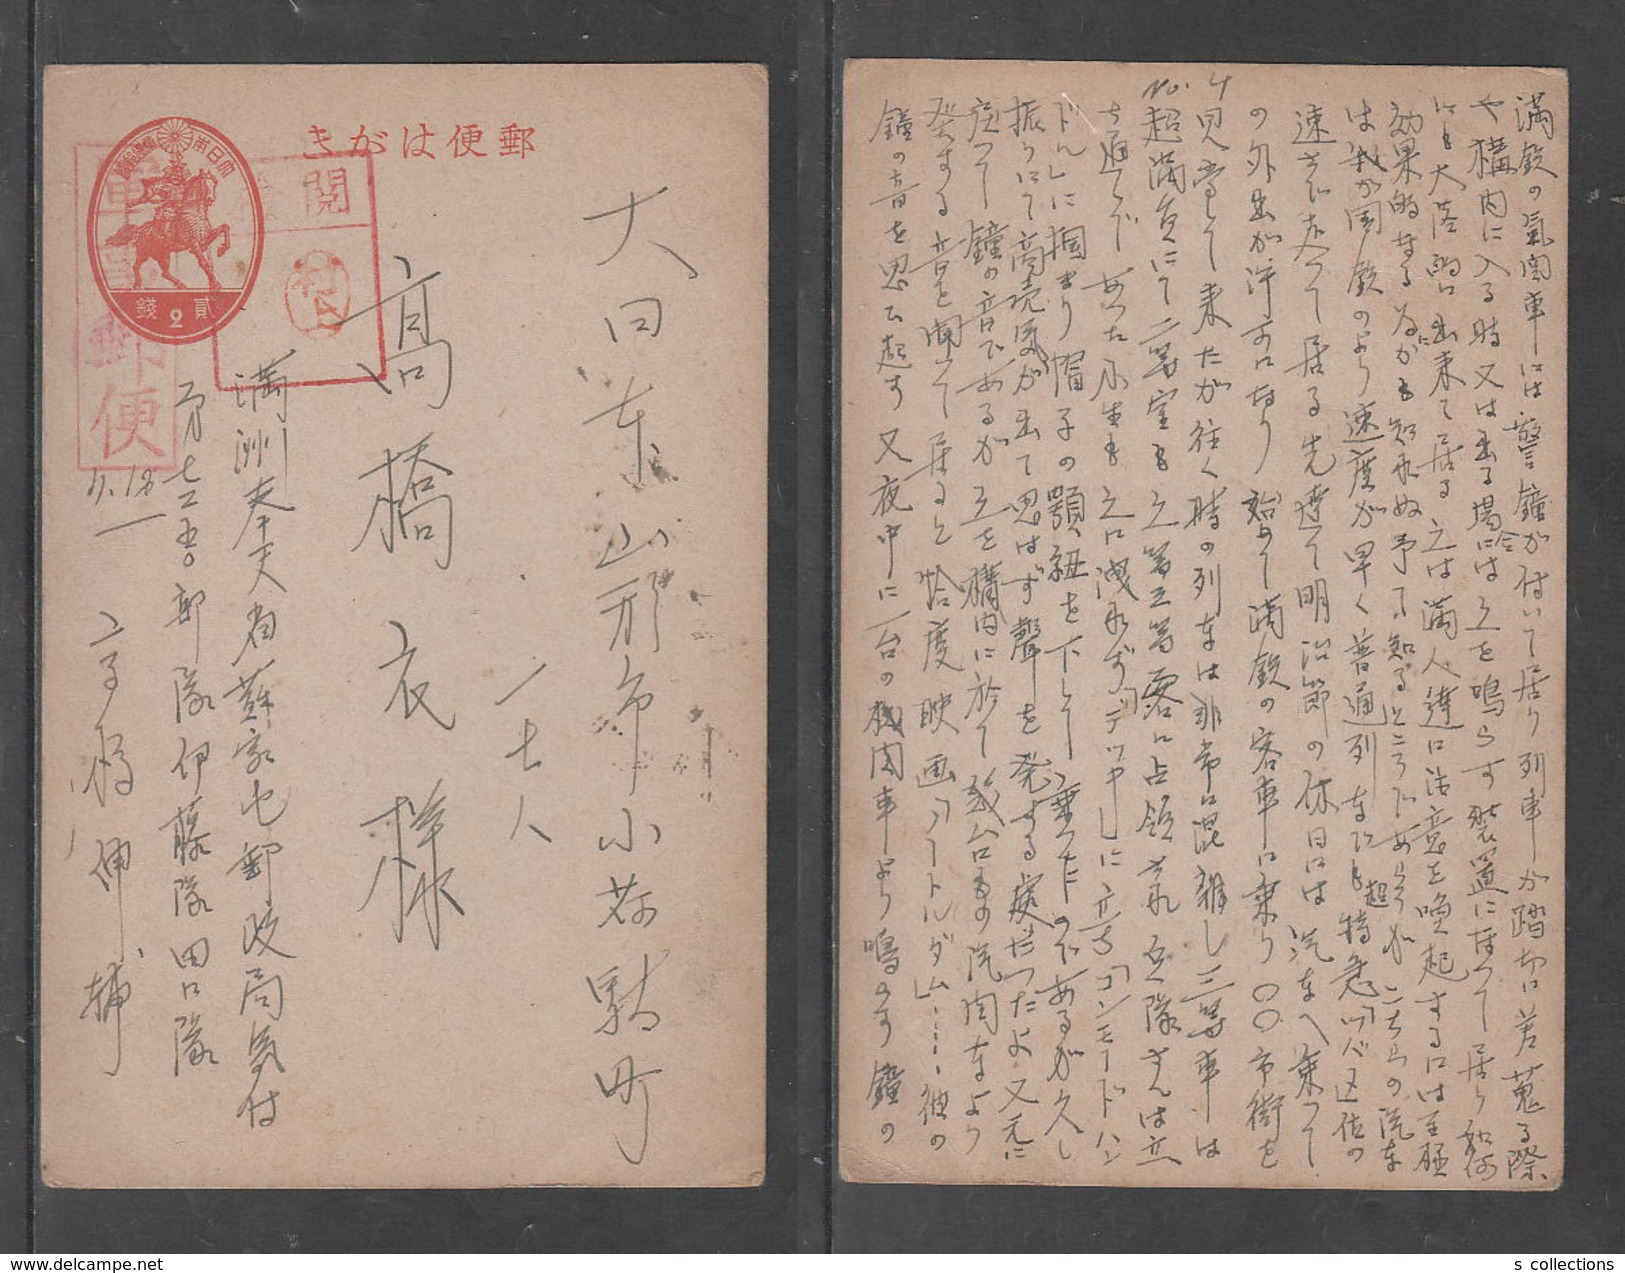 郵便はがき
大日本帝国郵便
貳錢
2
軍事郵便
検閲
11.18
大日本山形市小荷駄町
一士人
高橋衣様
満洲奉天省蘇家屯郵政局気付
第七三五〇部隊伊藤隊田口隊
伸輔
満鉄の気関車には警鐘が付いて居り列車が踏切に差蒐る際
や構内に入る時又は出る場合には之を鳴らす装置になつて居り如何
にも大陸的に出来て居る之は満人達に注意を喚起するには至極
効果的なる為かも知れぬ予て知るところであらうがこちらの汽車
は我が国鉄のより速度が早く普通列車でも超特急「ツバメ」位の
速さで走つて居る先達て明治節の休日には汽車へ乗つて
の外出が許可になり始めて満鉄の客車に乗り〇〇市街を
見学して来たが往く時の列車は非常に混雑し三等車は
超満員にて二等室も之等立等客に占領され兵隊さんは立
ち通しであつた小生も之に洩れず「デツキ」に立ち「コンモードハン
ドル」に掴まり帽子の顎紐を下して乗つたのであるが久し
振りにて商売気が出て思はず声を発する処だつたよ又元に
戻つて鐘の音であるが之を構内に於て数台もの汽関車より
発する音を聞いて居ると恰度映画「ノートルダム」……彼の
鐘の音を思ひ起す又夜中に一台の機関車より鳴らす鐘の
s collections
delcampe.net